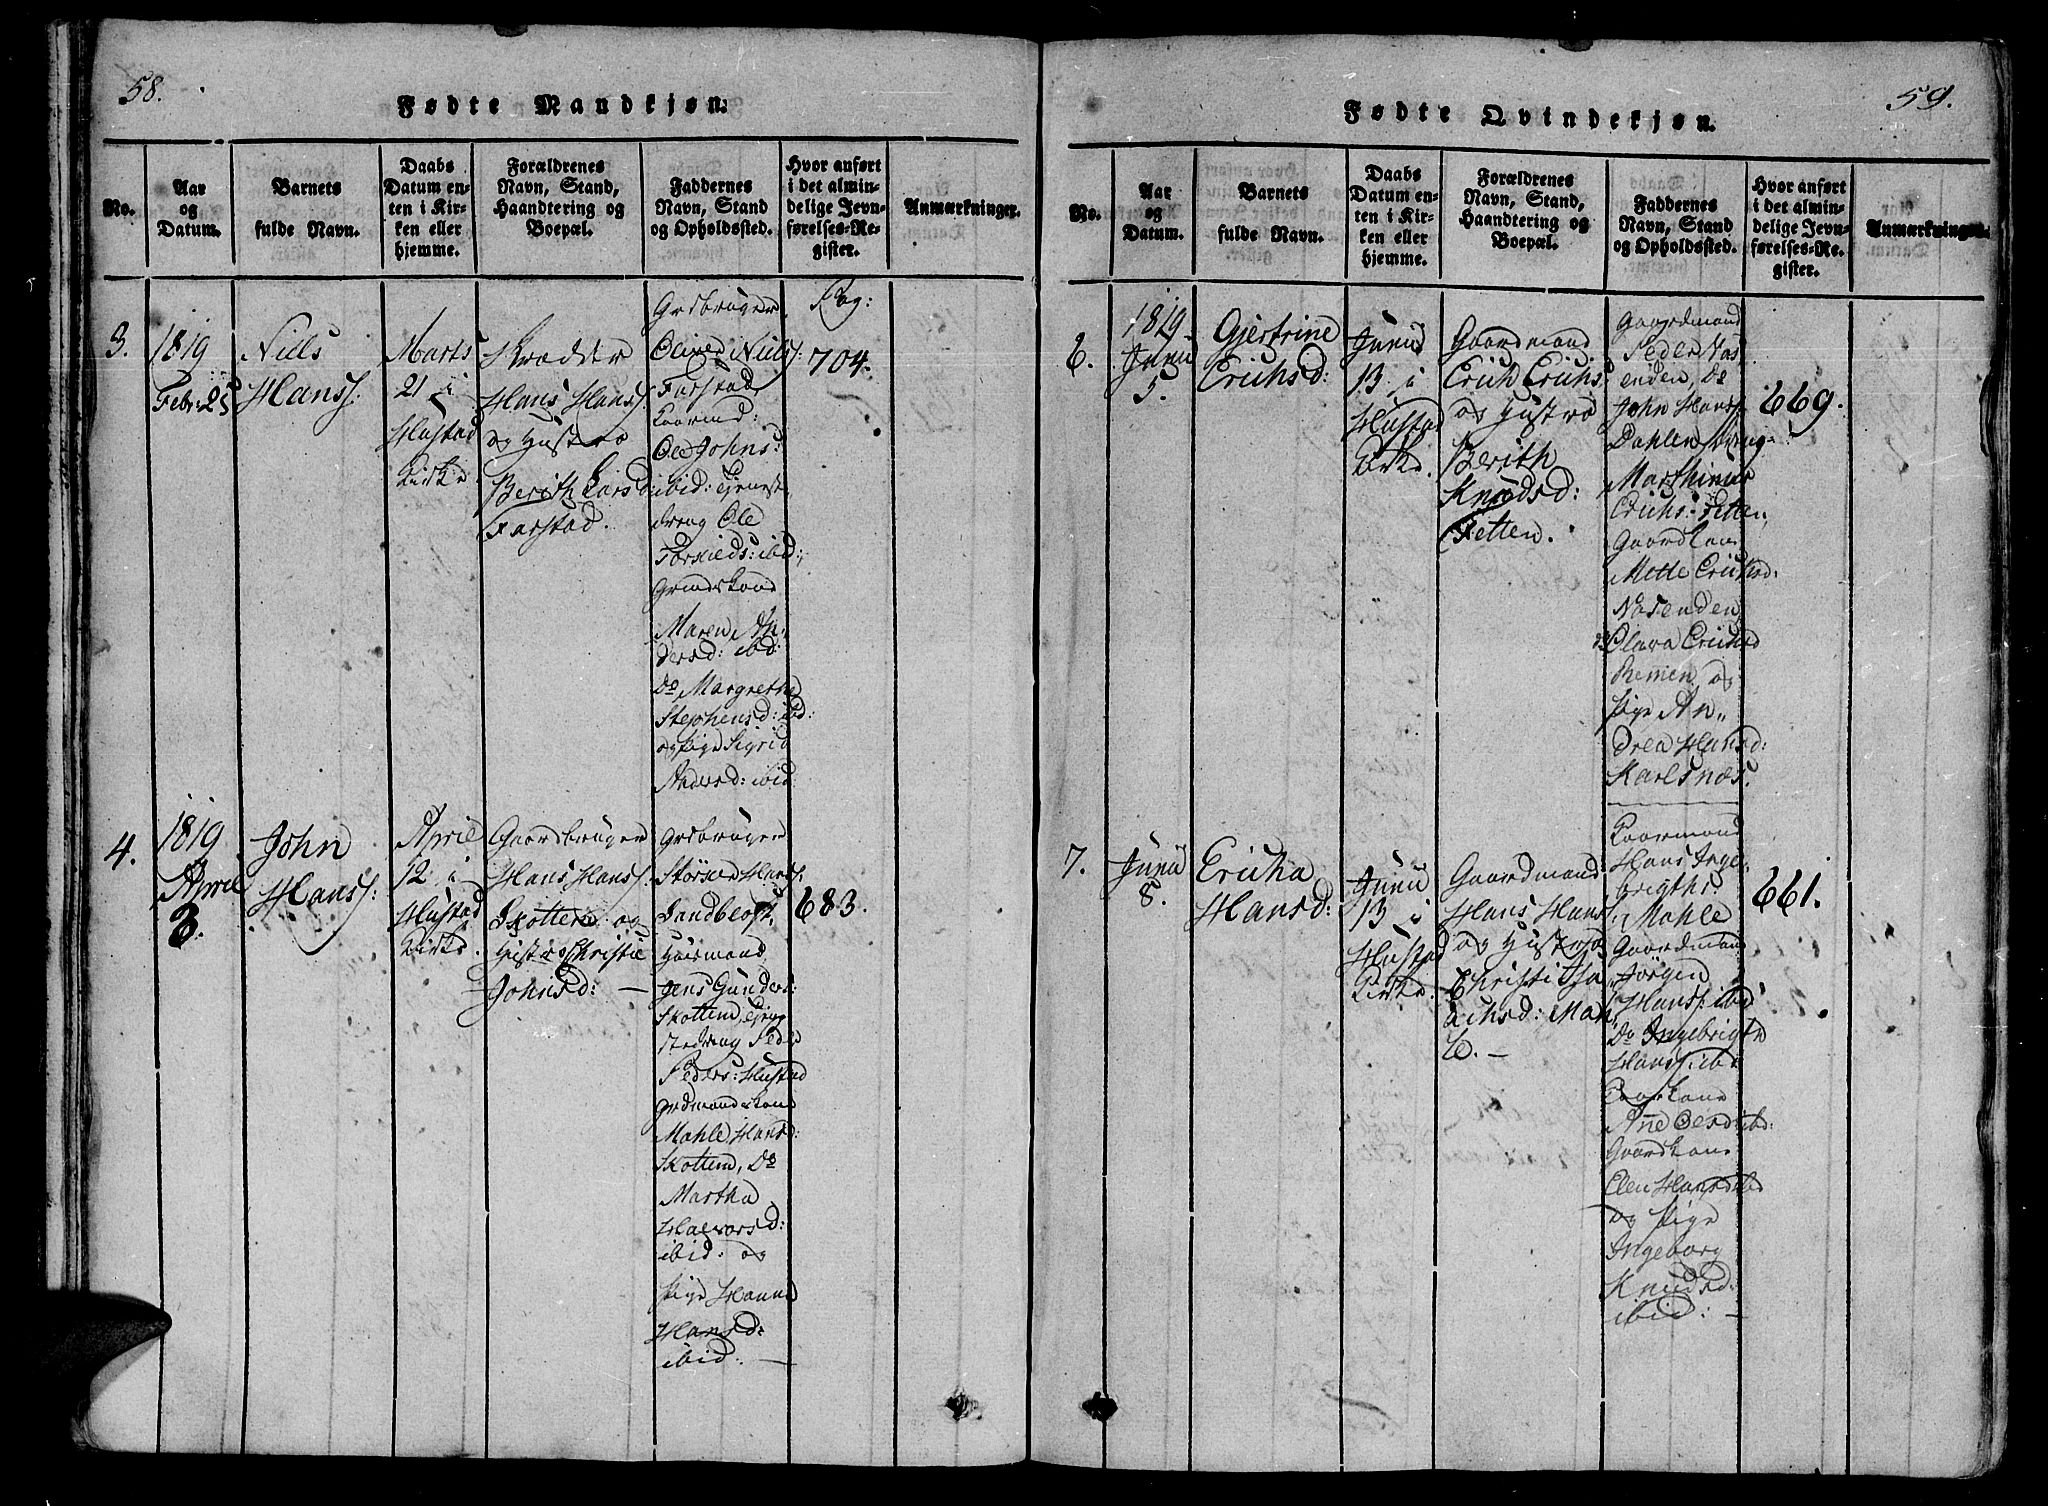 58.
Fødte Mandkjøn.
No.
Aar
og
Datum.
Barnets
fulde Navn.
Daabs
Datum en-
ten i Kir-
ken eller
hjemme.
Forældrenes
Navn, Stand,
Haandtering og
Boepæl.
Faddernes
Navn, Stand
og Opholdssted.
Hvor anført
i det almin-
delige Jevn-
førelses-Re-
gister.
Anmærkninger.
3.
1819
Febr: 25
Niels
Hanss:
Marts
21 i
Hustad
Kirke
Skrædder
Hans Hanss:
og Hustroe
Berith Larsd:
Farstad.
Grdbruger
Oliver Nielss:
Farstad
Ole Johns:
ibid: Tjenest
dreng Ole
Torkilds: ibid:,
Maren An„
dersd: ibid:
Do Margrethe
Stephensd: ibid:
og Pige Sigrid
Andersd: ibid
Pag:
704.
4.
1819
April
3.
John
Hanss:
April
12 i
Hustad
Kirke.
Gaardbruger
Hans Hanss:
Skottem og
Hustroe Christie
Johnsd: —
Grdbruger
Størker Hanss:
Sandblost,
Huusmand
Jens Gunders:
Skottem,
Peders: Hustad
Grdmandskone
Mahle Hansd:
Skottem, Do
Martha
Halvorsd:
ibid: og
Pige Hanna
Hansd:
ibid: —
683.
59.
Fødte Qvindekjøn.
No.
Aar
og
Datum.
Barnets
fulde Navn.
Daabs
Datum en-
ten i Kir-
ken eller
hjemme.
Forældrenes
Navn, Stand,
Haandtering og
Boepæl.
Faddernes
Navn, Stand
og Opholdssted.
Hvor anført
i det almin-
delige Jevn-
førelses-Re-
gister.
Anmærkninger.
6.
1819.
Junii
5.
Gjertrine
Erichsd:
Junii
13 i
Hustad
Kirke.
Gaardmand
Erich Erichs:
og Hustroe
Berith
Knudsd:
Tetten.
Gaardmand
Peder Nas„
enden, Do
John Hanss:
Dahlen, Dreng
Marthinus
Erichs: Tetten,
Gaardkone
Mette Erichsd:
Nasenden
Do Olava Erichsd
Remen og
Pige An„
drea Hansd:
Karlsnæs.
669.
7.
Junii
8.
Ericha
Hansd:
Junii
13 i
Hustad
Kirke.
Gaardmand
Hans Hanss:
og Hustroe
Christi Isa„
achsd: Mah„
le. —
Hans Inge„
brigths:
Mahle
Gaardmand
Jørgen
Hanss: ibid
Do Ingebrigt
Hanss: ibid
Ane Olesd: ibid:
Gaardkone
Elen Hansd: ibid
og Pige
Ingeborg
Knudsd:
ibid: —
661.